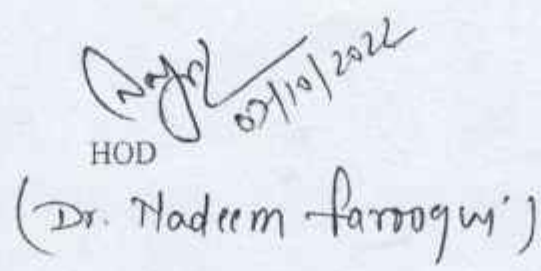 07/10/2022
HOD
(Dr. Nadeem farooqui)